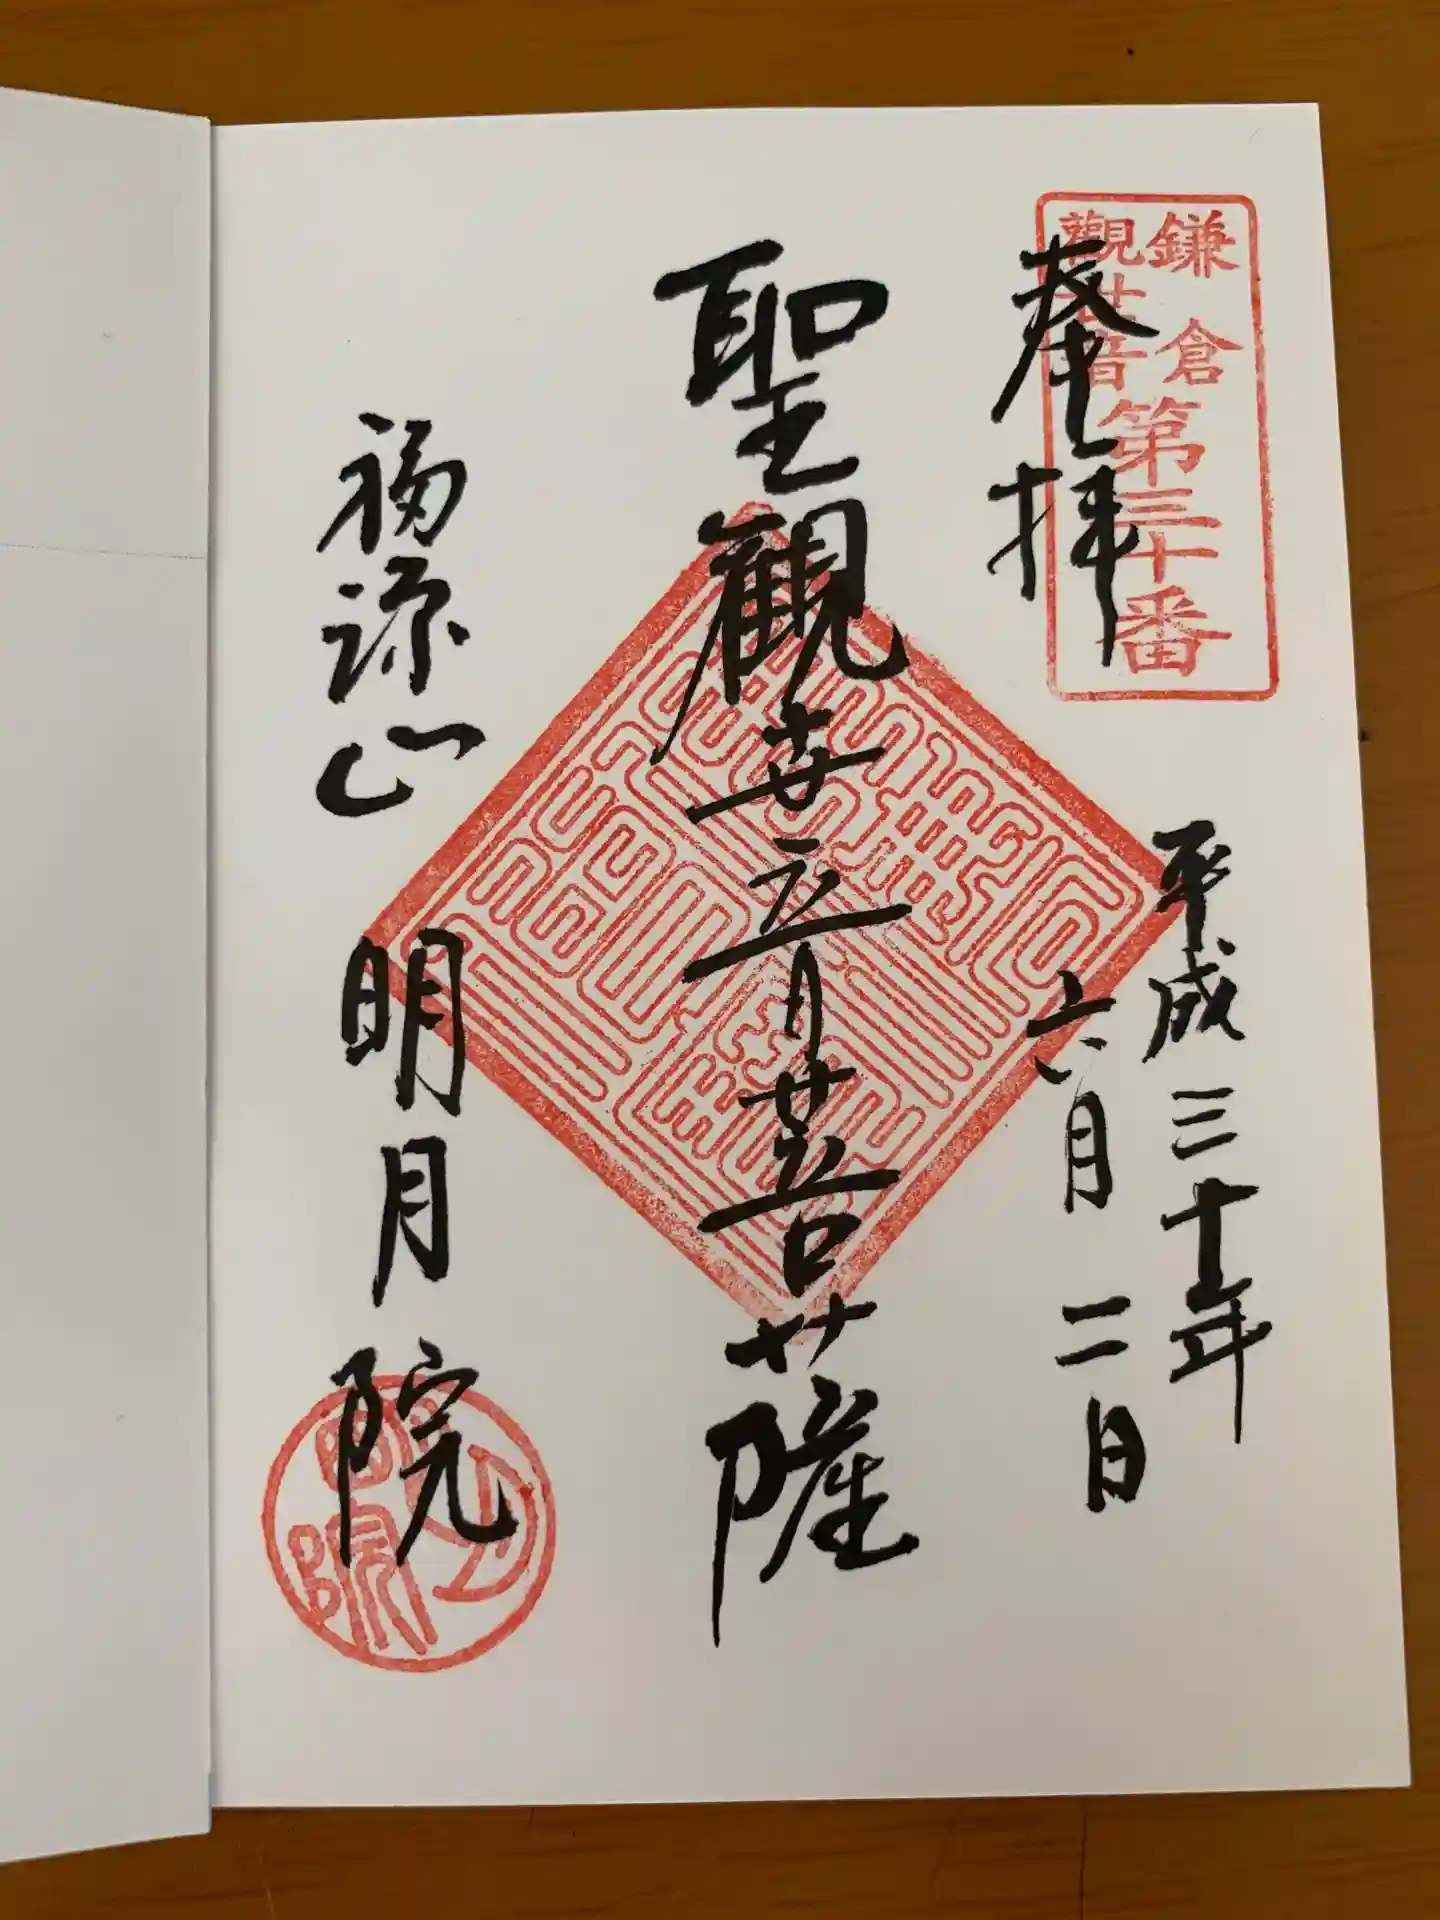 鎌倉
觀世音
第三十番
奉拝
平成三十年
六月二日
聖観世音菩薩
福源山 明月院